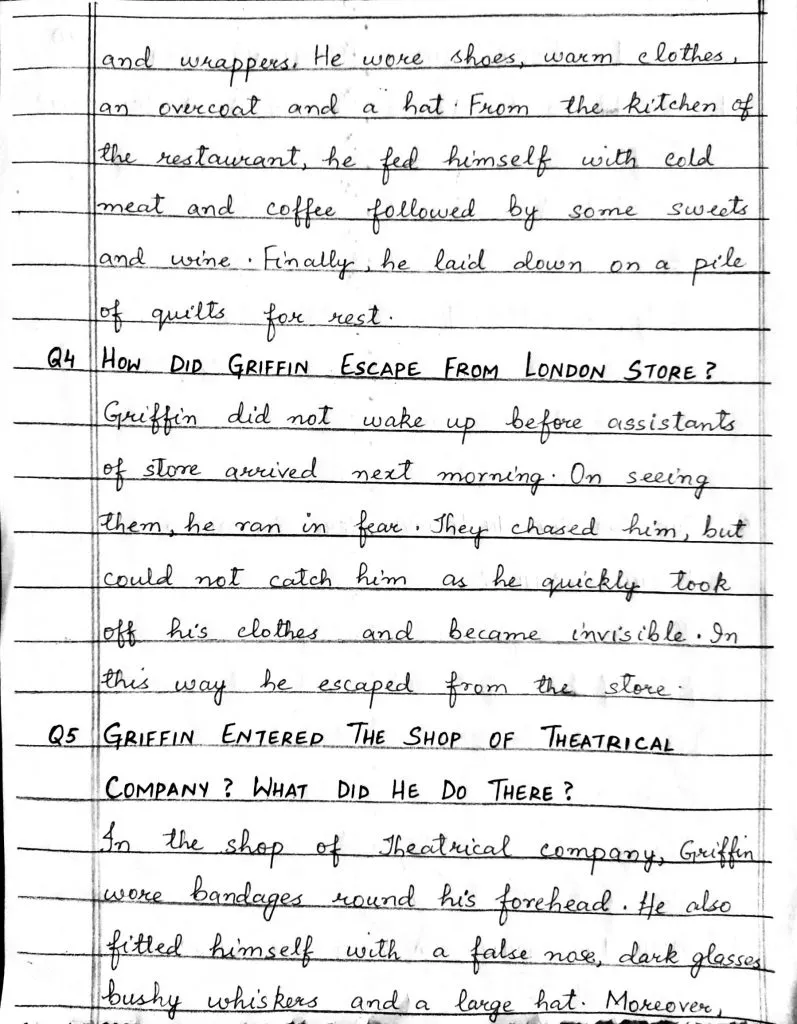 and wrappers. He wore shoes, warm clothes,
an overcoat and a hat. From the kitchen of
the restaurant, he fed himself with cold
meat and coffee followed by some sweets
and wine. Finally, he laid down on a pile
of quilts for rest.
Q4 HOW DID GRIFFIN ESCAPE FROM LONDON STORE?
Griffin did not wake up before assistants
of store arrived next morning. On seeing
them, he ran in fear. They chased him, but
could not catch him as he quickly took
off his clothes and became invisible. In
this way he escaped from the store.
Q5 GRIFFIN ENTERED THE SHOP OF THEATRICAL
COMPANY? WHAT DID HE DO THERE?
In the shop of Theatrical company, Griffin
wore bandages round his forehead. He also
fitted himself with a false nose, dark glasses
bushy whiskers and a large hat. Moreover,